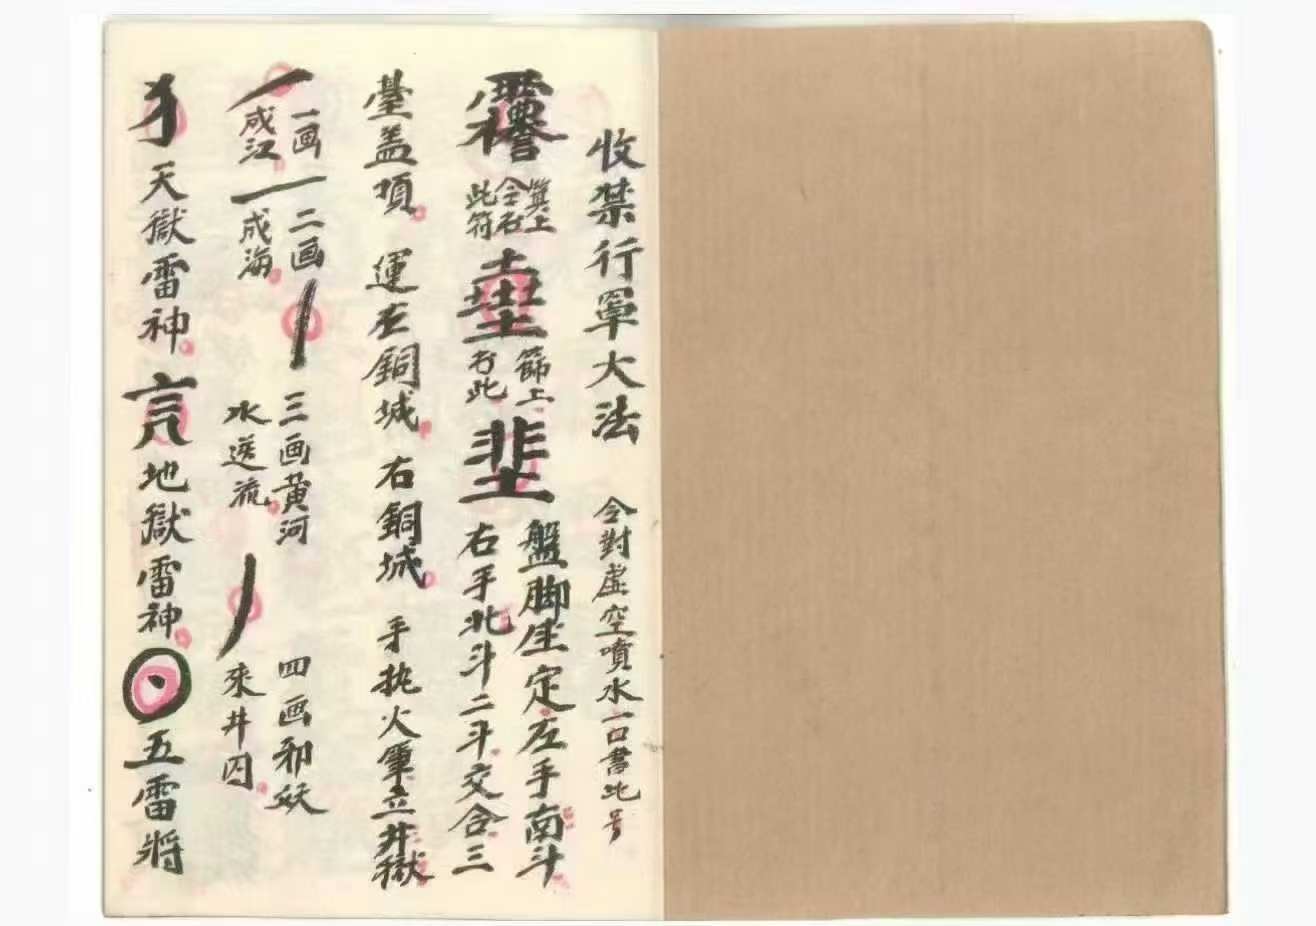 收禁行罩大法 令對虛空噴水一口書此号
篆上令右此符
篩上书此
盤脚坐定左手南斗
右手北斗二斗交合三
臺盖項 運左銅城 右銅城 手执火筆立井獄
一画成江 二画成海 三画黄河水送流 四画邪妖來井囚
天獄雷神 地獄雷神 五雷將